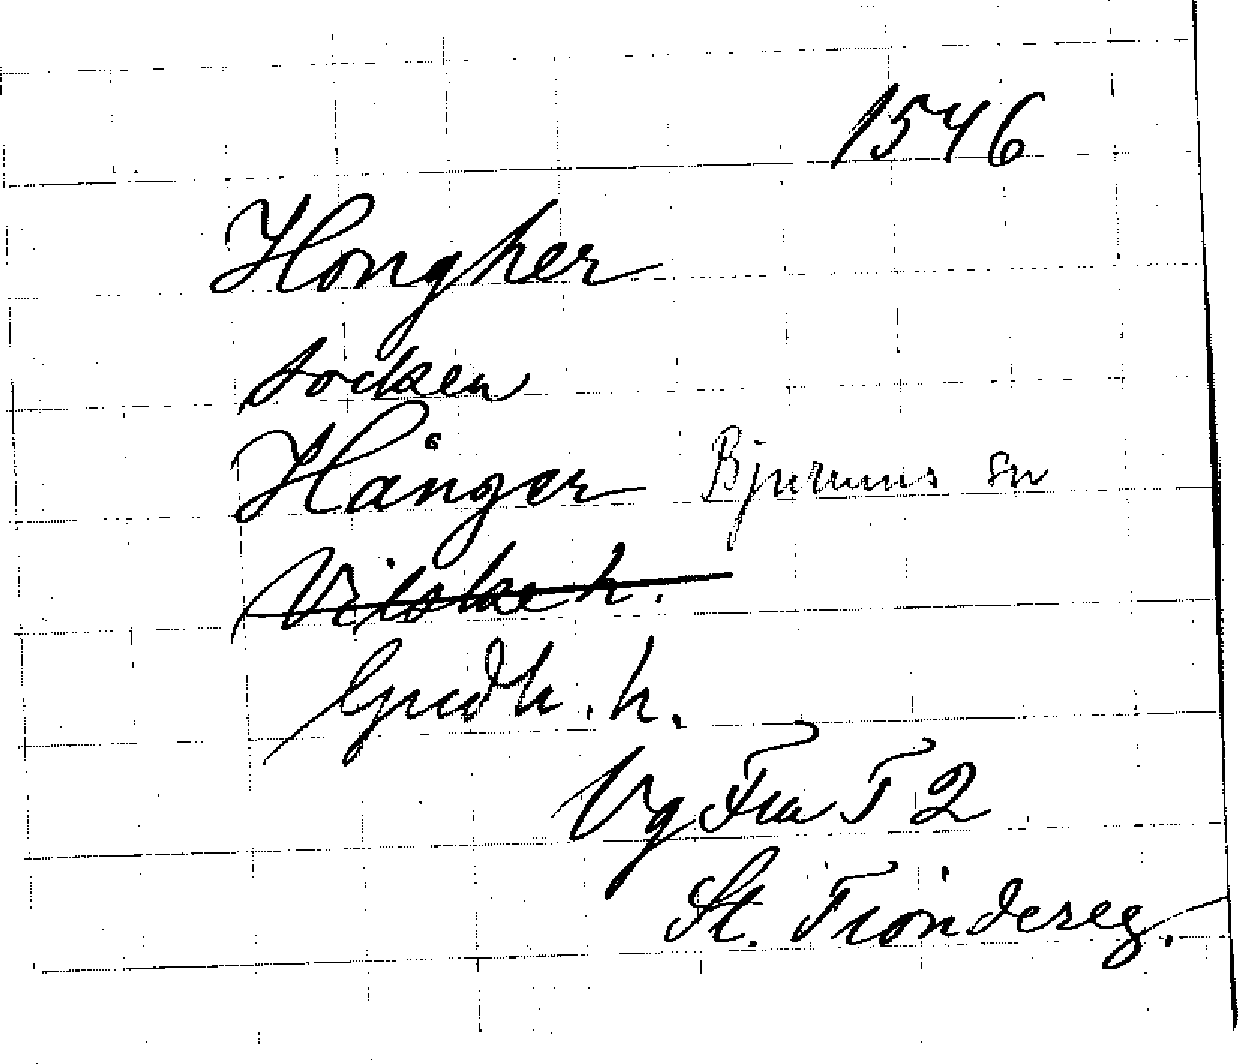 1546
Hongher
socken
Hånger Bjurums sn
Vilske h.
Gudh. h.
Vg Fra T 2
St. Tiondereg.